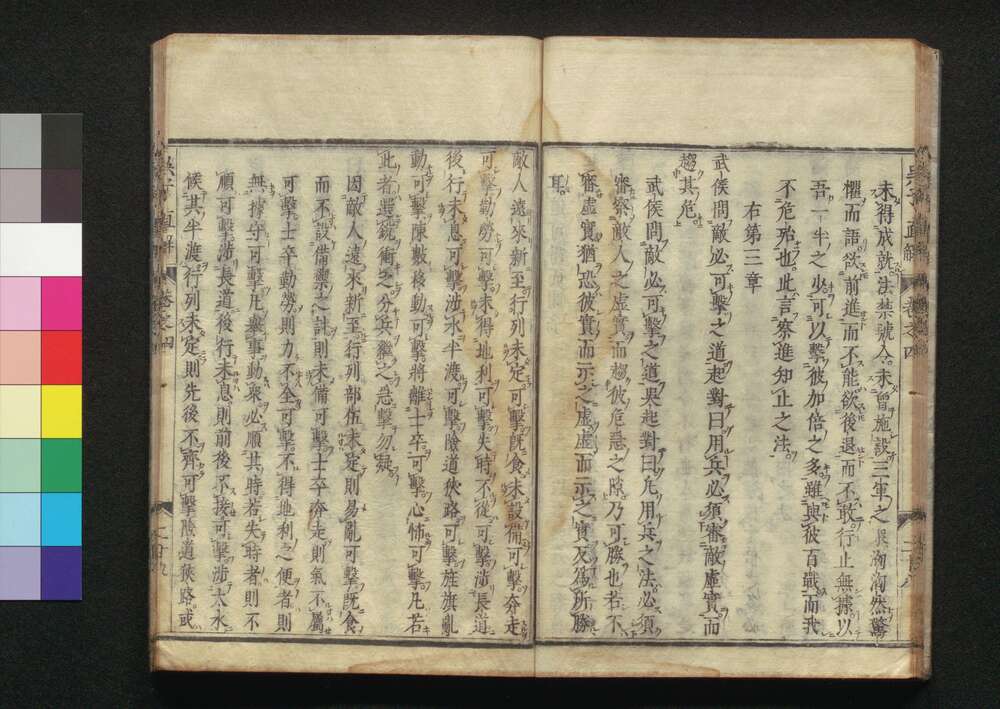 未得成就法禁號令未曾施設三軍之衆洶洶然驚
懼而語欲前進而不能欲後退而不敢行止無據以
吾一半之少可以擊彼加倍之多雖與彼百戰而我
不危殆也此言察進知止之法
右第三章
武侯問敵必可擊之道起對曰用兵必須審敵虛實而
趨其危
武侯問敵必可擊之道吳起對曰凡用兵之法必須
審察敵人之虛實而趨彼危急之隙乃可勝也若不
審虛實猶恐彼實而示之虛虛而示之實反為所勝
耳
敵人遠來新至行列未定可擊旣食未設備可擊奔走
可擊勤勞可擊未得地利可擊失時不從可擊涉長道
後行未息可擊涉水半渡可擊險道狹路可擊旌旗亂
動可擊陳數移動可擊將離士卒可擊心怖可擊凡若
此者選銳衝之分兵繼之急擊勿疑
因敵人遠來新至行列部伍未定則易亂可擊旣食
而不設備禦之計則未備可擊士卒奔走則氣不屬
可擊士卒勤勞則力不全可擊不得地利之便者則
無據守可擊凡舉事動衆必順其時若失時者則不
順可擊涉長道後行未息則前後不接可擊涉大水
候其半渡行列未定則先後不齊可擊險道狹路或